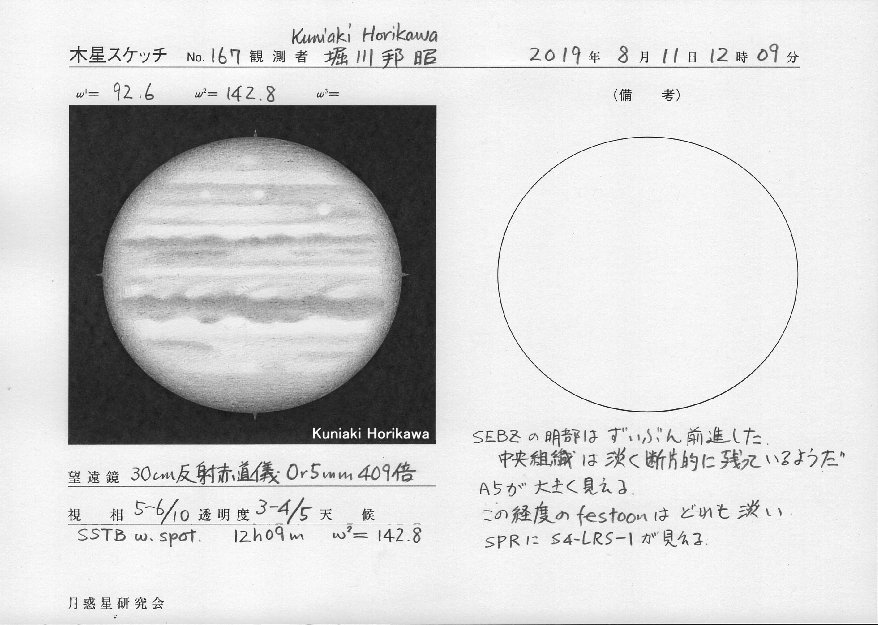 Kuniaki Horikawa
木星スケッチ No. 167 観測者 堀川邦昭 2019年 8月 11日 12時 09分
ω¹= 92.6 ω²= 142.8 ω³=
(備 考)
Kuniaki Horikawa
SEBZの明部はずいぶん前進した.
中央組織は淡く断片的に残っているようだ
A5が大きく見える.
この経度のfestoonはどれも淡い.
SPRにS4-LRS-1が見える.
望遠鏡 30cm反射赤道儀 Or5mm 409倍
視相 5-6/10 透明度 3-4/5 天候
SSTB w. spot. 12h09m ω²= 142.8
月惑星研究会